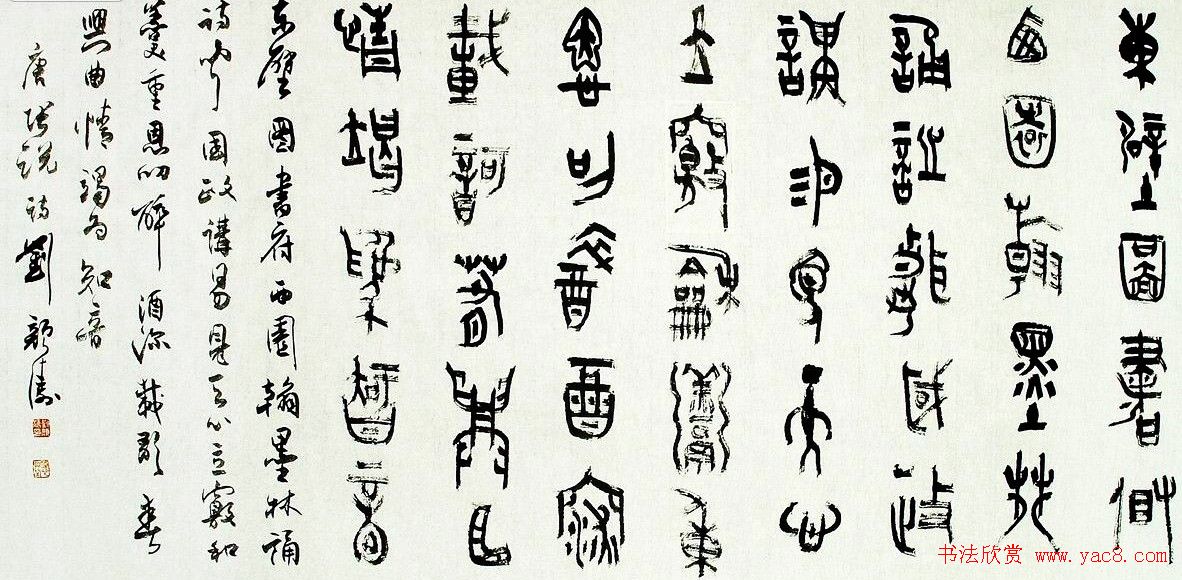 東壁圖書府
西園翰墨林
誦詩聞國政
講易見天心
立竊和羹重
恩叨醉酒深
載歌春興曲
情竭為知音
東壁圖書府西園翰墨林誦
詩聞國政講易見天心立竊和
羹重恩叨醉酒深載歌春
興曲情竭為知音
唐張說詩劉顏濤
书法欣赏 www.yac8.com